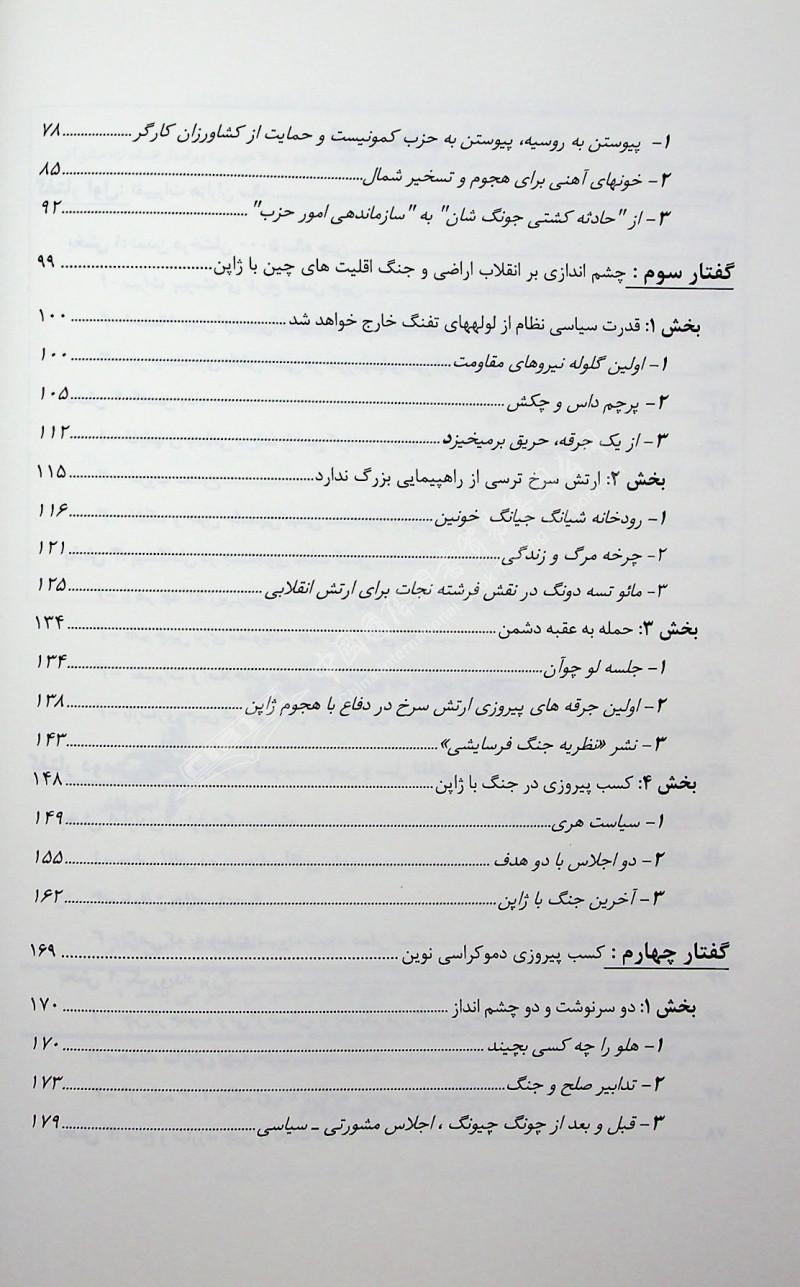 ۱- پیوستن به روسیه، پیوستن به حزب کمونیست و حمایت از کشاورزان کارگر ................. ۷۸
۲- خونهای آهنی برای هجوم و تسخیر شمال ................. ۸۵
۳- از "حادثه کشتی جونگ شان" به "سازماندهی امور حزب" ................. ۹۲
گفتار سوم : چشم اندازی بر انقلاب اراضی و جنگ اقلیت های چین با ژاپن ................. ۹۹
بخش ۱: قدرت سیاسی نظام از لولههای تفنگ خارج خواهد شد ................. ۱۰۰
۱- اولین گلوله نیروهای مقاومت ................. ۱۰۰
۲- پرچم داس و چکش ................. ۱۰۵
۳- از یک جرقه، حریق برمیخیزد ................. ۱۱۲
بخش ۲: ارتش سرخ ترسی از راهپیمایی بزرگ ندارد ................. ۱۱۵
۱- رودخانه شیانگ جیانگ خونین ................. ۱۱۶
۲- چرخه مرگ و زندگی ................. ۱۲۱
۳- مائو تسه دونگ در نقش فرشته نجات برای ارتش انقلابی ................. ۱۲۵
بخش ۳: حمله به عقبه دشمن ................. ۱۳۴
۱- جلسه لو چوآن ................. ۱۳۴
۲- اولین جرقه های پیروزی ارتش سرخ در دفاع با هجوم ژاپن ................. ۱۳۸
۳- نشر «نظریه جنگ فرسایشی» ................. ۱۴۳
بخش ۴: کسب پیروزی در جنگ با ژاپن ................. ۱۴۸
۱- سیاست هری ................. ۱۴۹
۲- دو اجلاس با دو هدف ................. ۱۵۵
۳- آخرین جنگ با ژاپن ................. ۱۶۲
گفتار چهارم : کسب پیروزی دموکراسی نوین ................. ۱۶۹
بخش ۱: دو سرنوشت و دو چشم انداز ................. ۱۷۰
۱- هلو را چه کسی بچیند ................. ۱۷۰
۲- تدابیر صلح و جنگ ................. ۱۷۳
۳- قبل و بعد از چونگ چیونگ ، اجلاس مشورتی ـ سیاسی ................. ۱۷۹